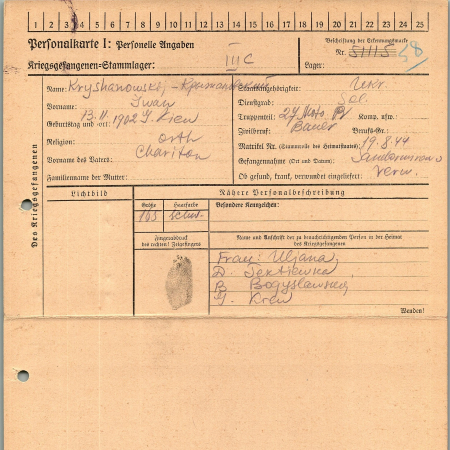 1 2 3 4 5 6 7 8 9 10 11 12 13 14 15 16 17 18 19 20 21 22 23 24 25
Personalkarte I: Personelle Angaben
Beschriftung der Erkennungsmarke
Nr. 51115
58
Kriegsgefangenen-Stammlager: III C
Lager:
Des Kriegsgefangenen
Name: Kryshanowskij - Крижановский
Staatsangehörigkeit: Ukr.
Vorname: Iwan
Dienstgrad: Sol.
Geburtstag und -ort: 13.11.1902 G. Kiew
Truppenteil: 27 Moto. Komp. usw.:
Religion: orth
Zivilberuf: Bauer Berufs-Gr.:
Matrikel Nr. (Stammrolle des Heimatstaates): 19.8.44
Vorname des Vaters: Chariton
Gefangennahme (Ort und Datum):
Familienname der Mutter:
Ob gesund, krank, verwundet eingeliefert: Verw.
Lichtbild
Nähere Personalbeschreibung
Größe Haarfarbe Besondere Kennzeichen:
165 schw.
Fingerabdruck
des rechten! Zeigefingers
Name und Anschrift der zu benachrichtigenden Person in der Heimat
des Kriegsgefangenen
Frau: Uljana,
D.
R.
G. Kiew
Wenden!